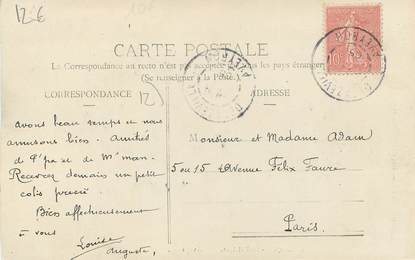 12-6
CARTE POSTALE
La Correspondance au recto n'est pas acceptée par tous les pays étrangers
(Se renseigner à la Poste.)
CORRESPONDANCE
12
ADRESSE
avons beau temps et nous
amusons bien. Amitiés
de et de
Recevrez demain un petit
colis
Bien affectueusement
à vous
Louise
Auguste,
Monsieur et Madame Adam
5 ou 15 Avenue Félix Faure
Paris.